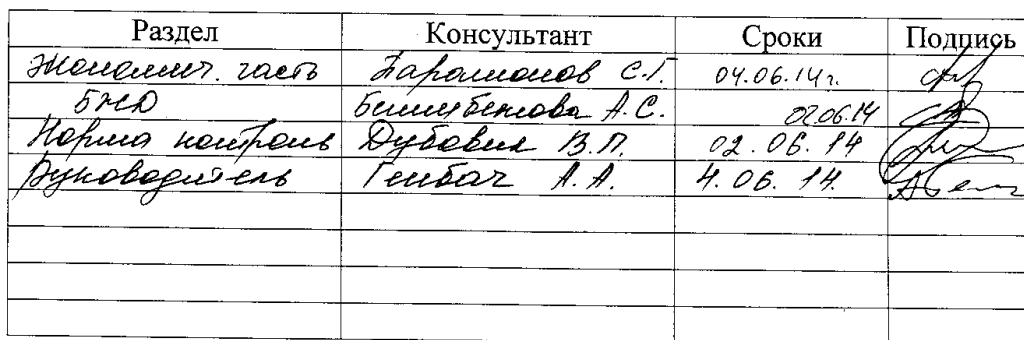 Раздел Консультант Сроки Подпись
Экономич. часть Парамонов С.Г. 04.06.14г.
БЖД Бегимбетова А.С. 02.06.14
Норма контроль Дубовик В.П. 02.06.14
Руководитель Генбач А.А. 4.06.14.